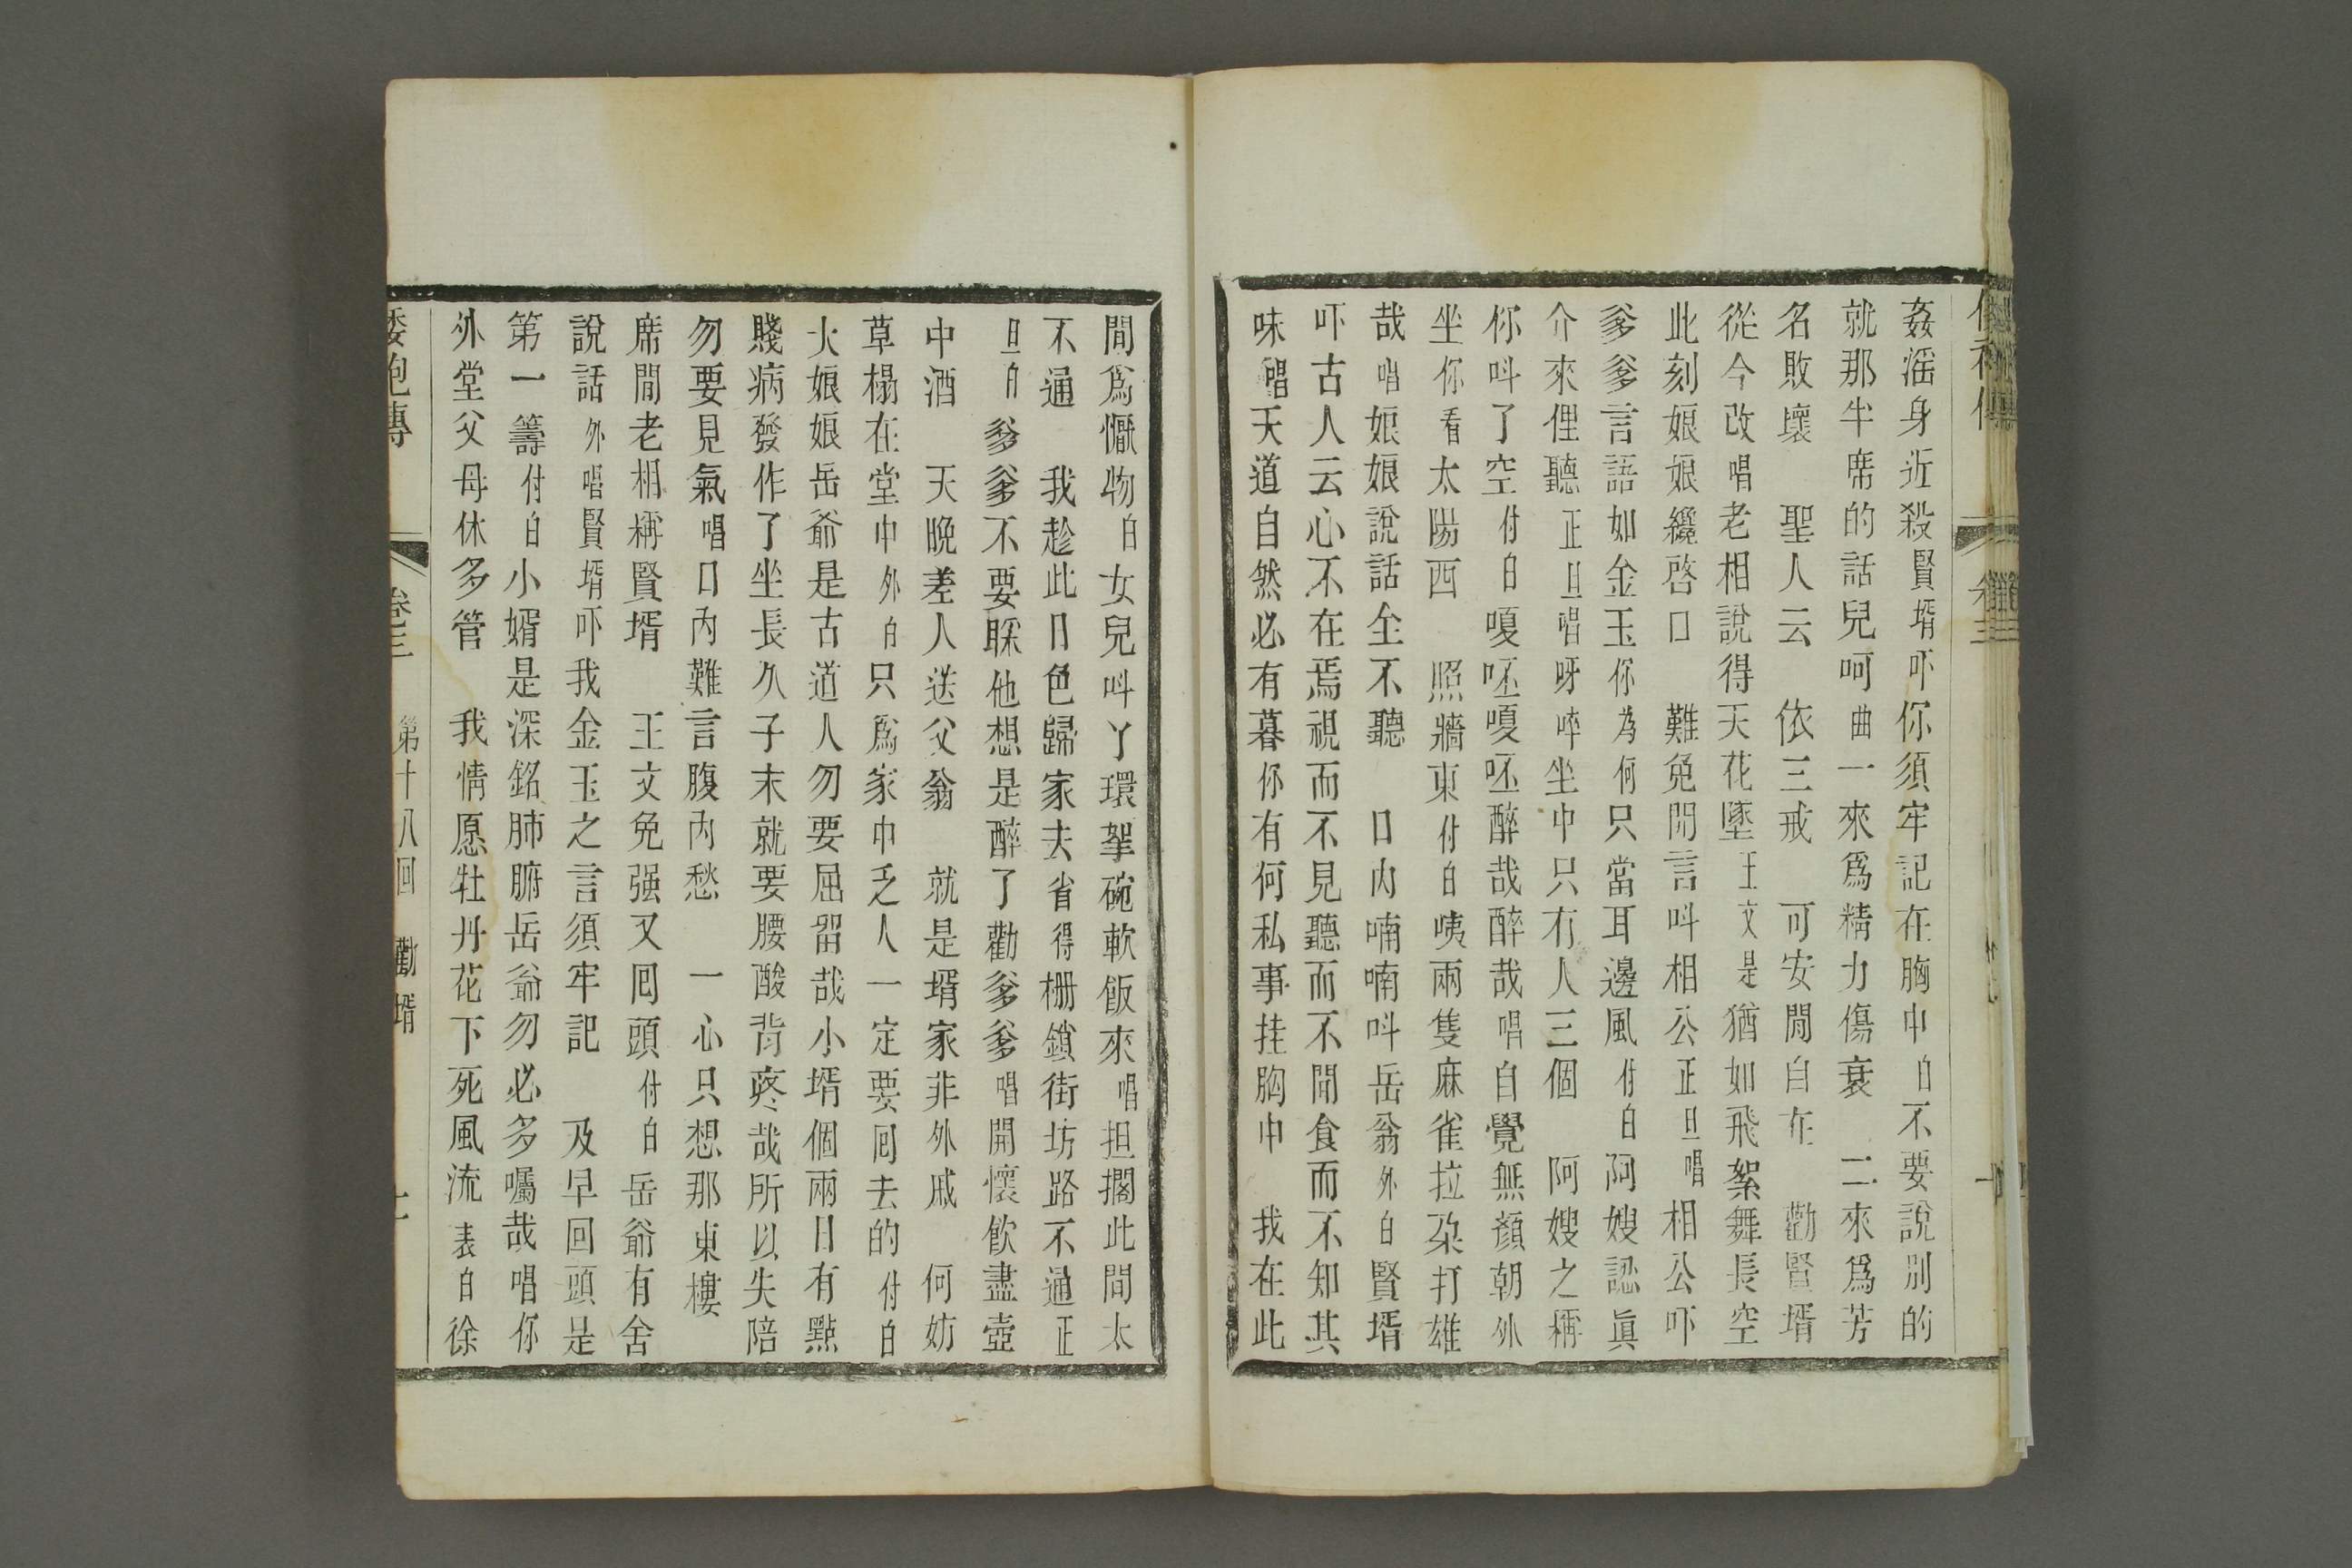 姦滛身近殺賢壻吓你須牢記在胸中白不要說別的
就那半席的話兒呵曲一來爲精力傷衰 二來爲芳
名敗壞 聖人云 依三戒 可安閒自在 勸賢壻
從今改唱老相說得天花墜王文是猶如飛絮舞長空
此刻娘娘纔啓口 難免開言呌相公正旦唱相公吓
爹爹言語如金玉你為何只當耳邊風付白阿嫂認眞
介來俚聽正旦唱呀啐坐中只有人三個 阿嫂之稱
你呌了空付白嗄呸嗄呸醉哉醉哉唱自覺無顏朝外
坐你看太陽西 照牆東付白咦兩隻麻雀拉朶打雄
哉唱娘娘說話全不聽 口内喃喃呌岳翁外白賢壻
吓古人云心不在焉視而不見聽而不聞食而不知其
味唱天道自然必有暮你有何私事挂胸中 我在此
間爲慨物白女兒呌丫環拏碗軟飯來唱担擱此間太
不通 我趁此日色歸家去省得柵鎖街坊路不通正
旦白爹爹不要睬他想是醉了勸爹爹唱開懷飲盡壺
中酒 天晚差人送父翁 就是壻家非外戚 何妨
草榻在堂中外白只爲家中乏人一定要囘去的付白
火娘娘岳爺是古道人勿要屈畱哉小壻個兩日有點
賤病發作了坐長久子末就要腰酸背疼哉所以失陪
勿要見氣唱口内難言腹内愁 一心只想那東樓
席間老相稱賢壻 王文免强又囘頭付白岳爺有舍
說話外唱賢壻吓我金玉之言須牢記 及早回頭是
第一籌付白小婿是深銘肺腑岳爺勿必多囑哉唱你
外堂父母休多管 我情愿牡丹花下死風流表白徐
倭袍傳 卷三 第十八回 勸壻